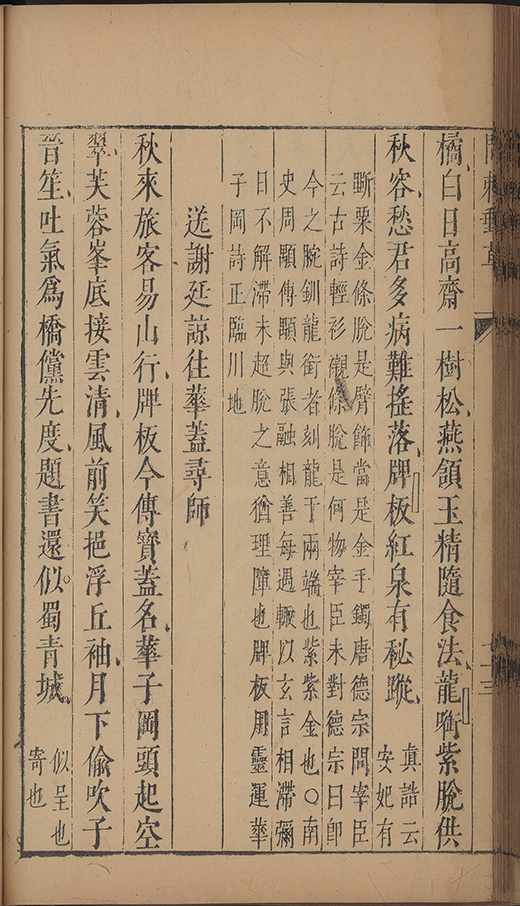 橘白日高齋一樹松燕頷玉精隨食法龍銜紫脫供
秋容愁君多病難搖落牌板紅泉有秘蹤
真誥云
安妃有
斷栗金條脫是臂飾當是金手鐲唐德宗問宰臣
云古詩輕衫襯條脫是何物宰臣未對德宗曰卽
今之腕釧龍銜者刻龍于兩端也紫紫金也○南
史周顒傳顒與張融相善每遇輙以玄言相滯彌
日不解滯未超脫之意猶理障也牌板用靈運華
子岡詩正臨川地
送謝廷諒往華蓋尋師
秋來旅客易山行牌板今傳寶蓋名華子岡頭起空
翠芙蓉峯底接雲清風前笑挹浮丘袖月下偸吹子
晉笙吐氣爲橋儻先度題書還似蜀青城
似呈也
寄也